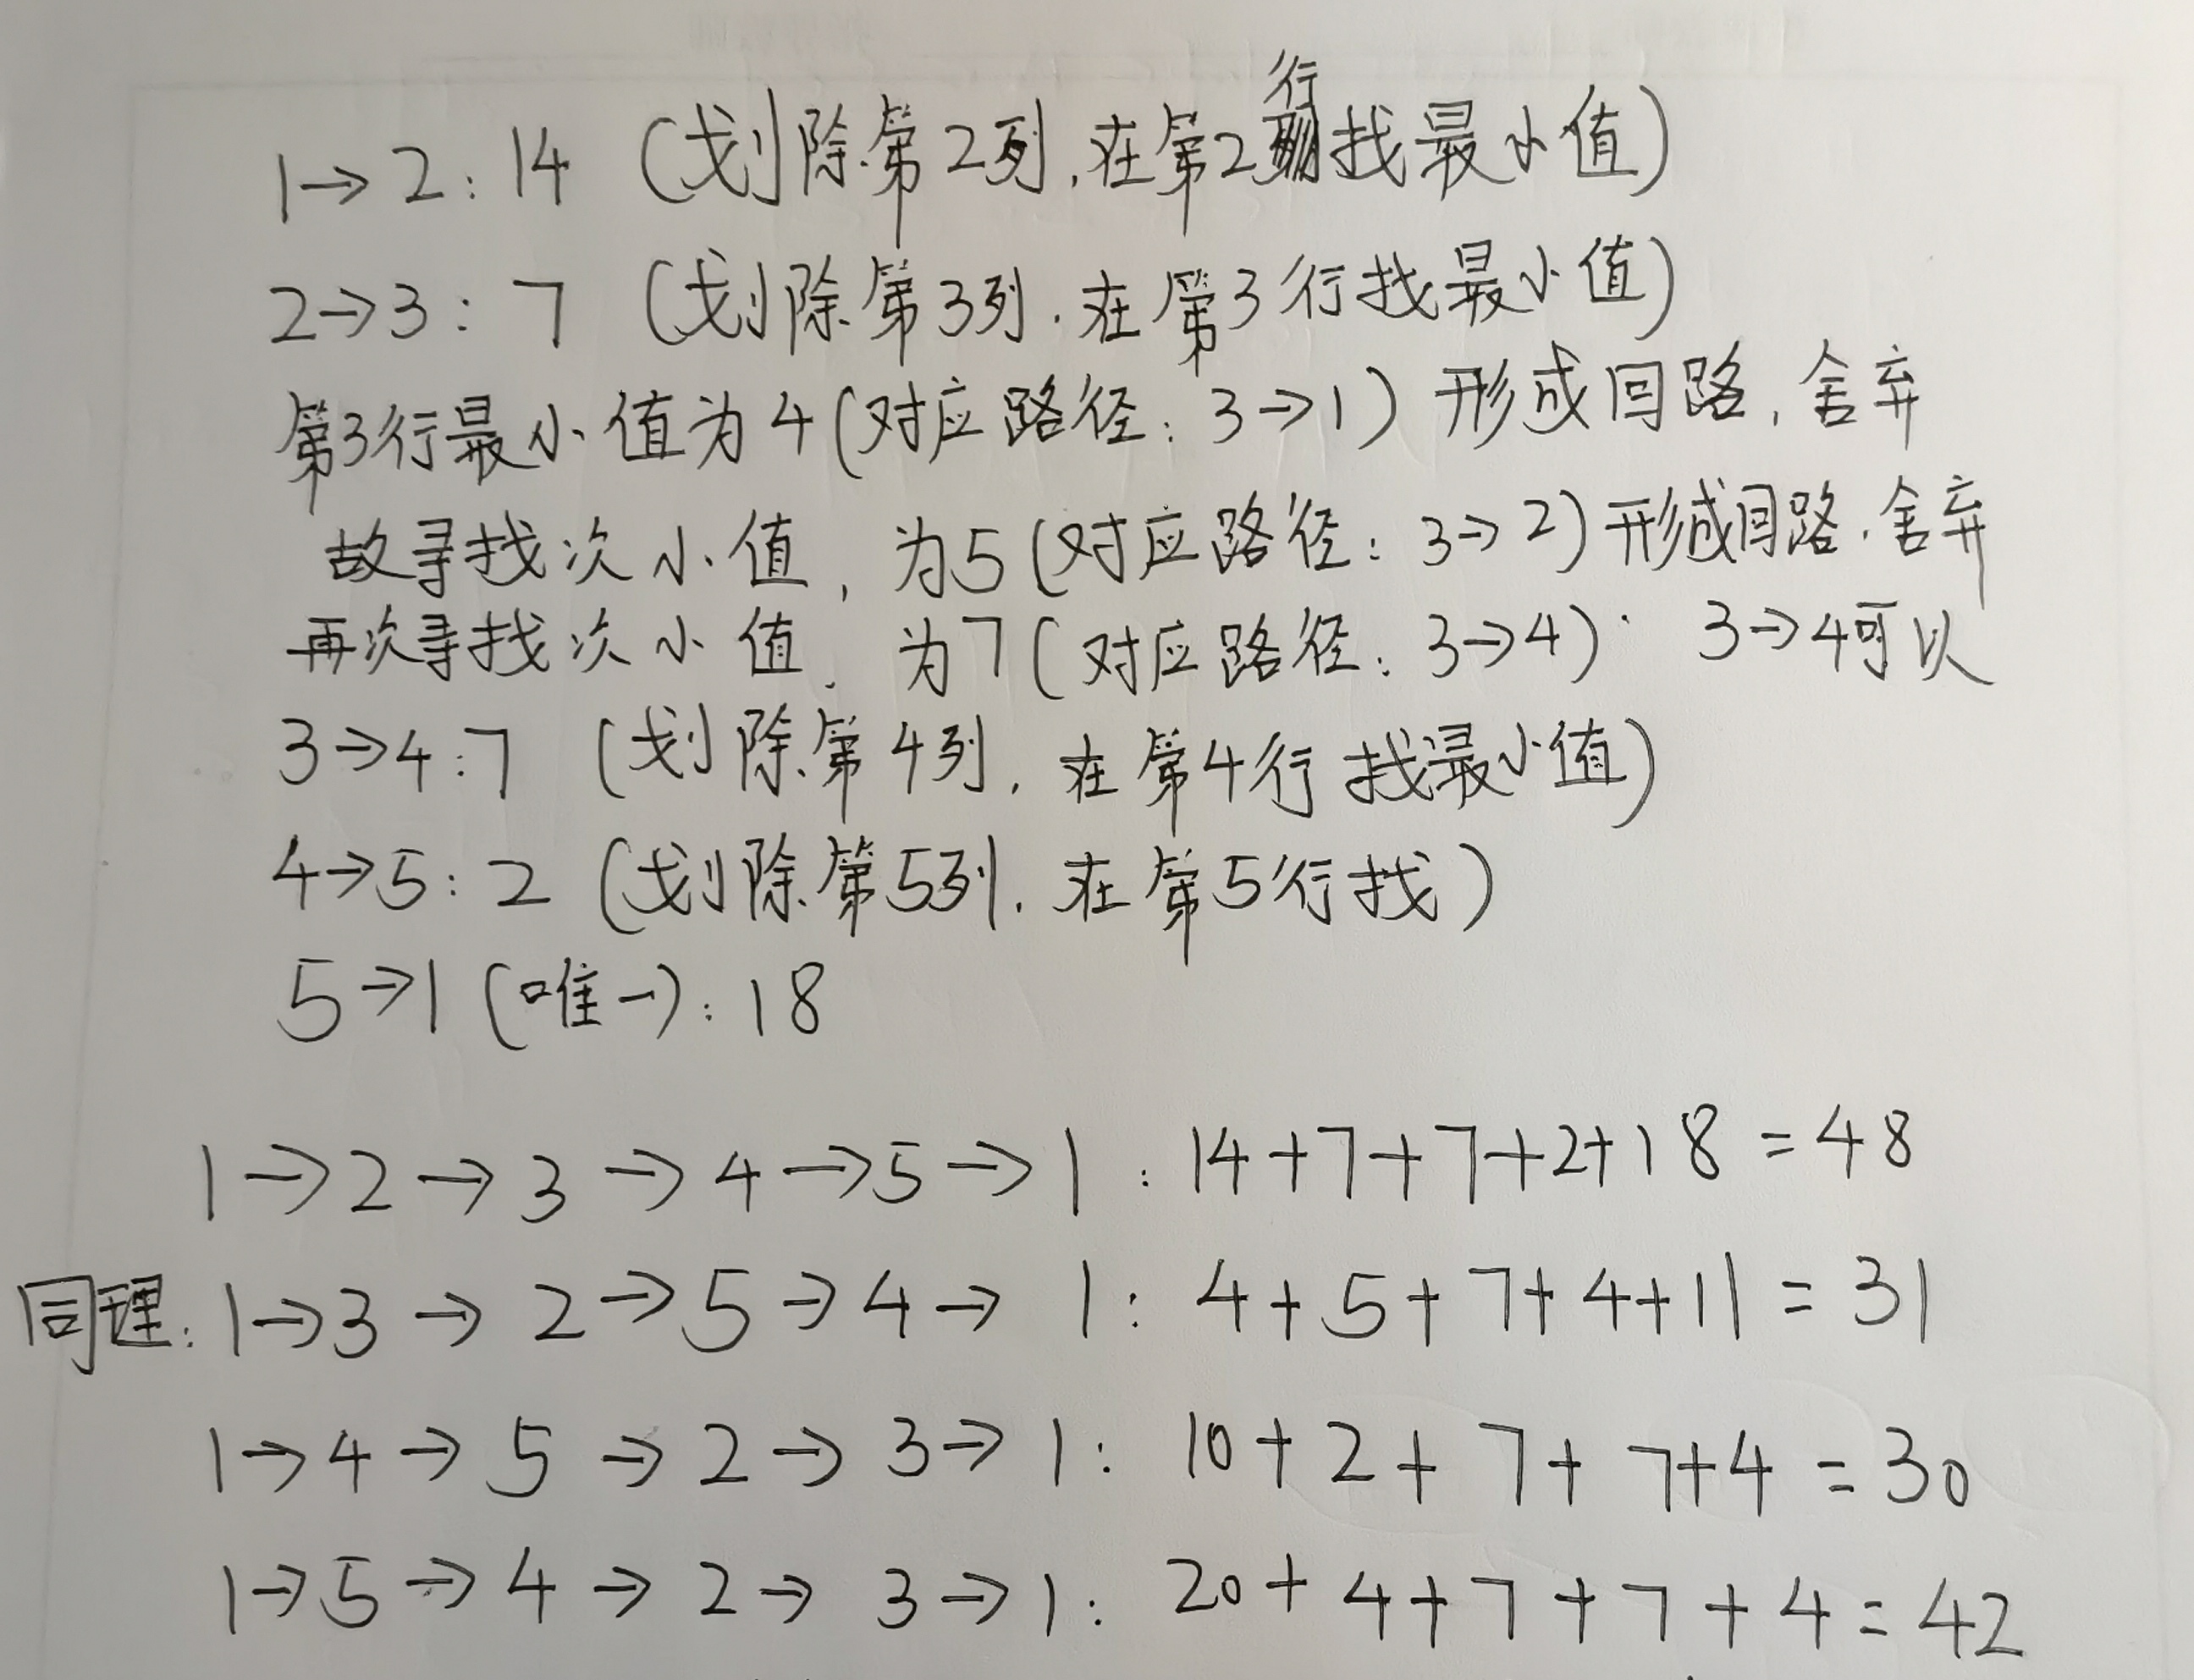 1→2: 14 (划除第2列.在第2行找最小值)
2→3: 7 (划除第3列.在第3行找最小值)
第3行最小值为4(对应路径: 3→1) 形成回路, 舍弃
故寻找次小值, 为5(对应路径: 3→2) 形成回路.舍弃
再次寻找次小值. 为7(对应路径: 3→4)· 3→4可以
3→4:7 (划除第4列. 在第4行找最小值)
4→5: 2 (划除第5列. 在第5行找)
5→1(唯一): 18
1→2→3→4→5→1: 14+7+7+2+18=48
同理: 1→3→2→5→4→1: 4+5+7+4+11=31
1→4→5→2→3→1: 10+2+7+7+4=30
1→5→4→2→3→1: 20+4+7+7+4=42